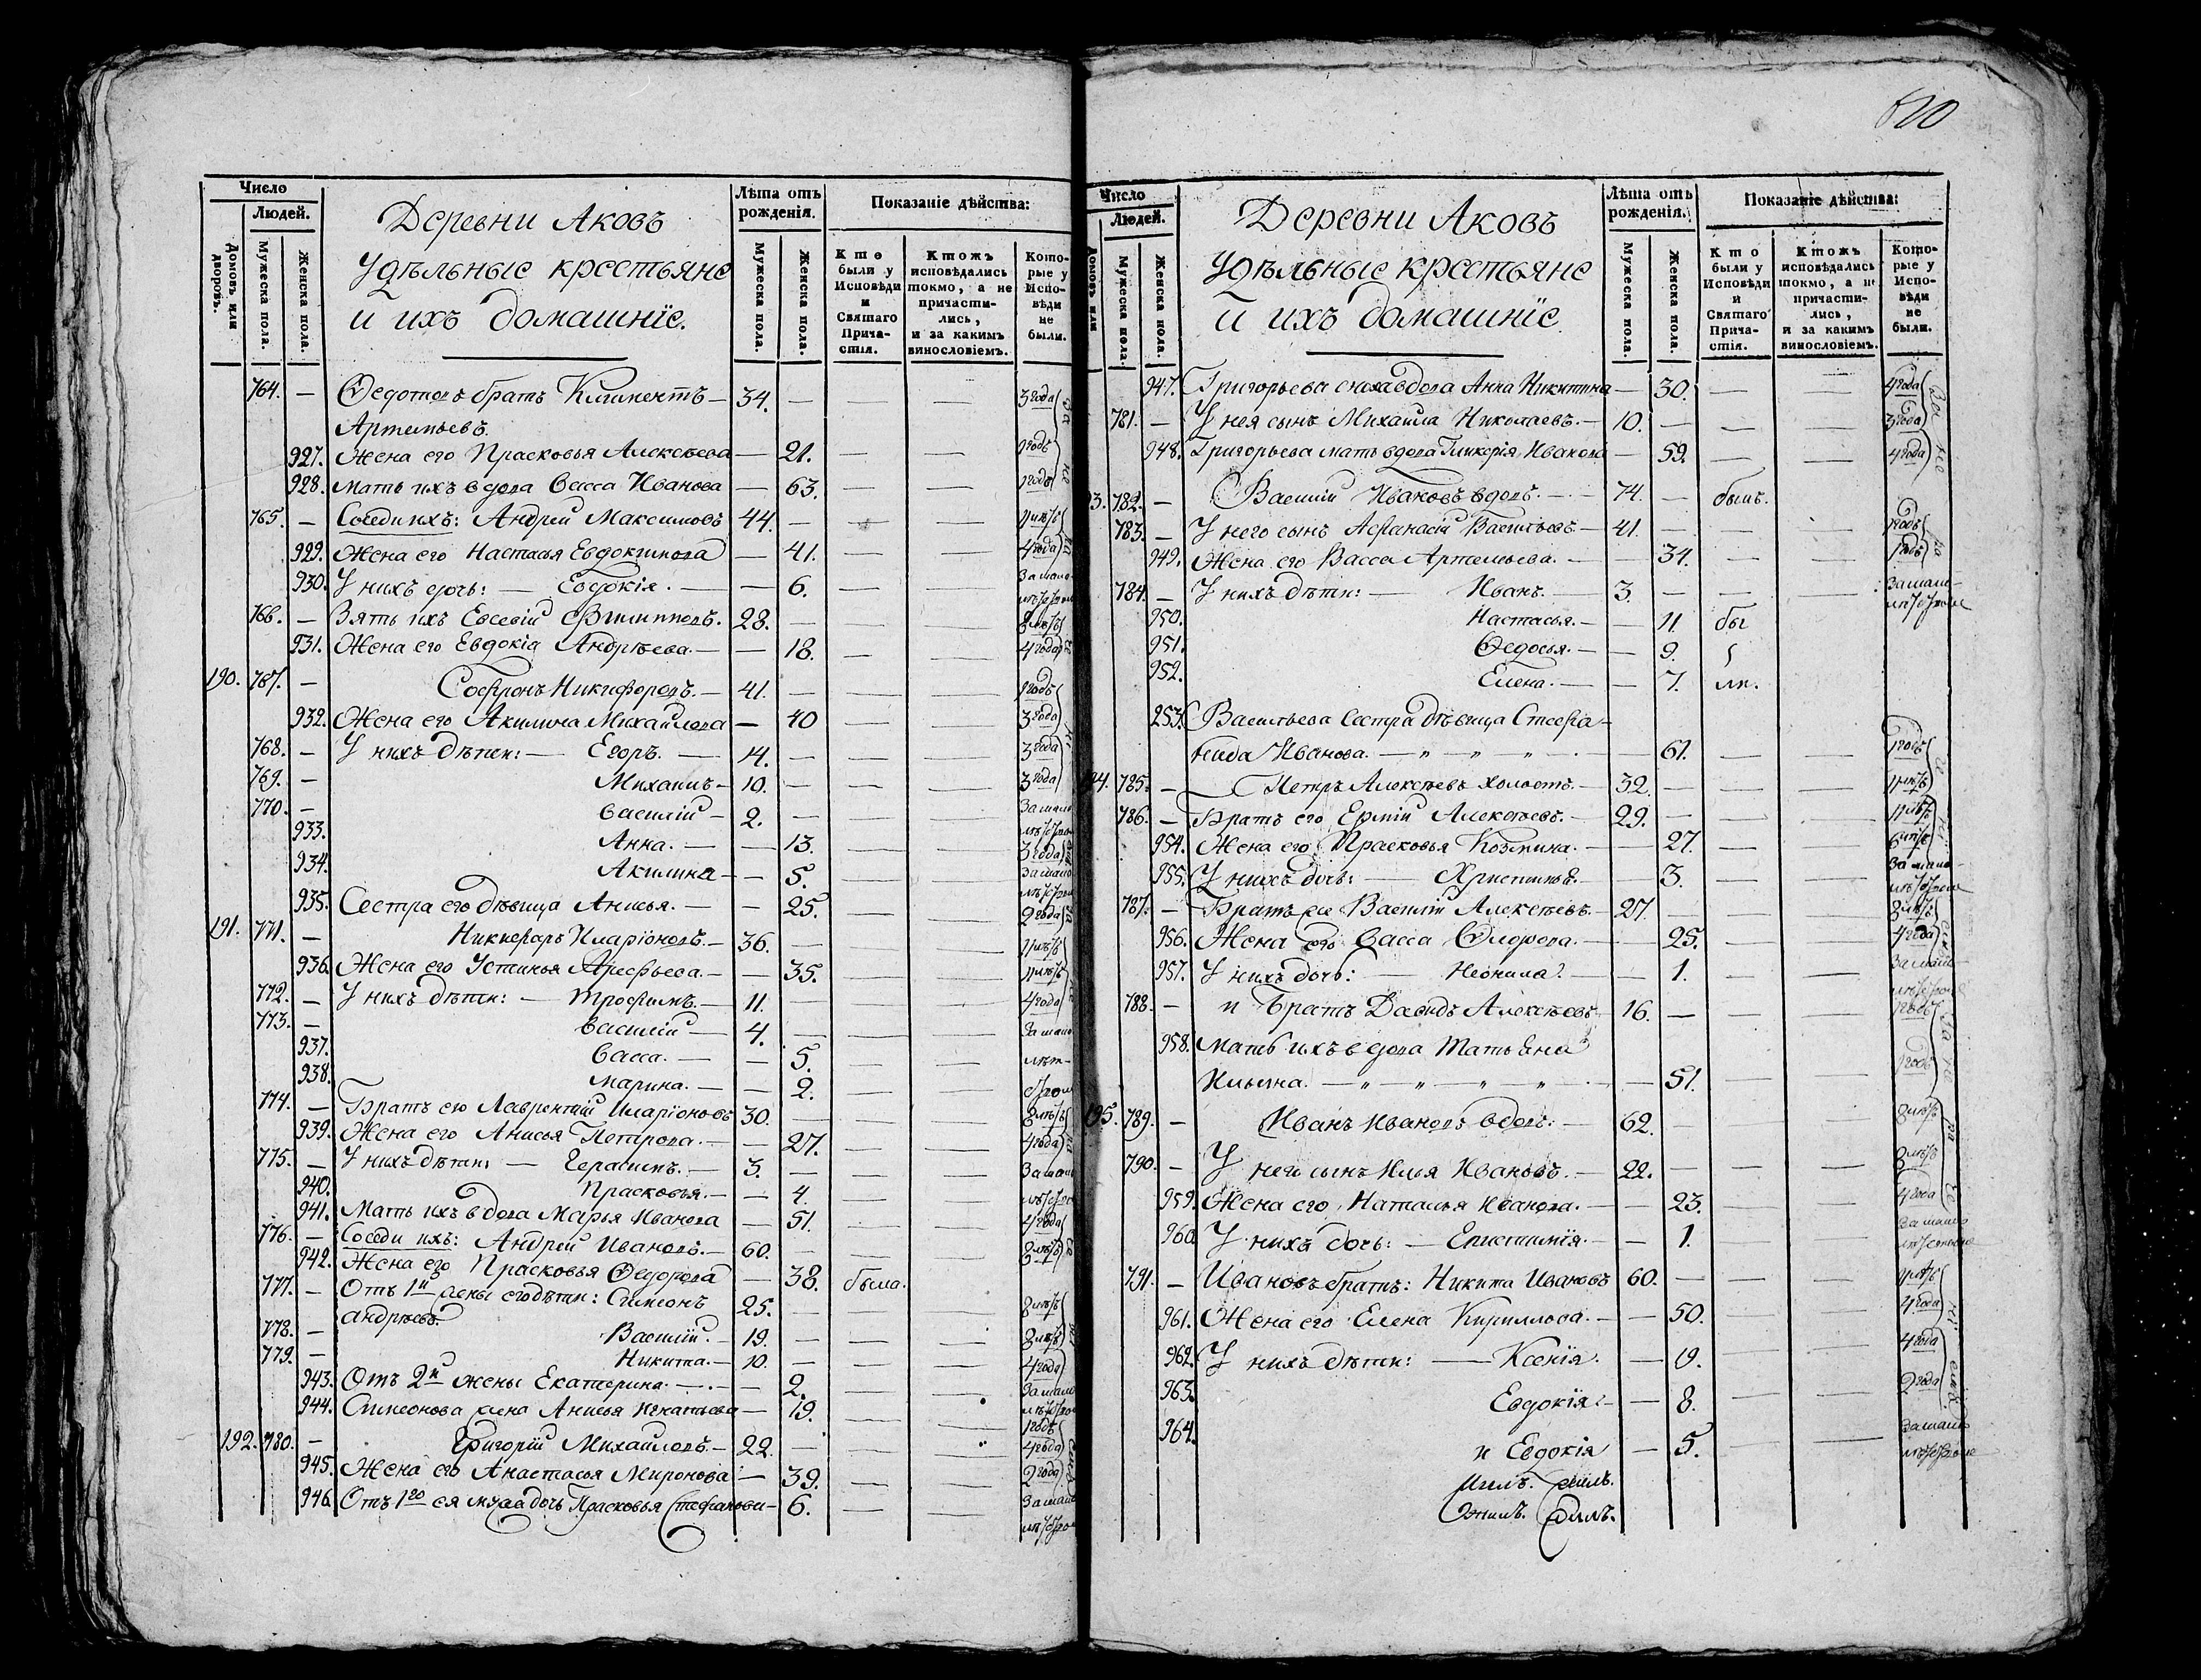 Число
Людей.
Домовъ или дворовъ.
Мужеска пола.
Женска пола.
Деревни Аковъ
Удѣльные крестьяне
и ихъ домашніе.
Лѣта отъ рожденія.
Мужеска пола.
Женска пола.
Показаніе дѣйства:
Кто были у Исповѣди и Святаго Прича-стія.
Ктожъ исповѣдались токмо, а не причасти-лись, и за какимъ винословіемъ.
Кото-рые у Испо-вѣди не были.
764. — Ѳедотовъ братъ Климентъ — 34. — — — 3 года
Артемьевъ.
927. Жена его Прасковья Алексѣева — 21. — — 1 годъ
928. Мать ихъ вдова Васса Иванова — 63. — — 1 годъ
765. — Соседи ихъ: Андрей Максимовъ 44. — — —
929. Жена его Настасья Евдокимова — 41. — — 4 года
930. У нихъ дочь: — Евдокія. — — 6. — — За мало-
766. — Зять ихъ Евсевій Филипповъ. 28. — — —
931. Жена его Евдокіа Андрѣева. — — 18. — — 4 года
190. 767. — Софронъ Никифоровъ. — 41. — — — 1 годъ
932. Жена его Акилина Михайлова — 40 — — 3 года
768. — У нихъ дѣти: — Егоръ. — 14. — — — 3 года
769. — Михаилъ — 10. — — — 3 года
770. — Василій — 2. — — — За мало
933. Анна. — — 13. — — 3 года
934. Акилина — — 5. — — За мало
935. Сестра его дѣвица Анисья. — — 25. — — 2 года
191. 771. — Никифоръ Иларіоновъ. — 36. — — —
936. Жена его Устинья Арефьева. — — 35. — —
772. — У нихъ дѣти: — Трофимъ. — 11. — — — 4 года
773. — Василій — 4. — — — За мало
937. Васса. — — 5. — — лѣт-
938. Марина. — — 2. — —
774. — Братъ его Лаврентій Иларіоновъ 30. — — —
939. Жена его Анисья Петрова. — — 27. — — 4 года
775. — У нихъ дѣти: — Герасимъ. — 3. — — — За мало
940. Прасковья. — — 4. — —
941. Мать ихъ вдова Марья Иванова — 51. — — 4 года
776. — Соседи ихъ: Андрей Ивановъ. — 60. — — —
942. Жена его Прасковья Ѳедорова — 38. была.
777. — Отъ 1й жены его дѣти: Симеонъ 25. — — —
Андрѣевъ.
778. — Василій. — 19. — — —
779. — Никита. — 10. — — — 4 года
943. Отъ 2й жены Екатерина. — — 2. — — За мало
944. Симеонова жена Анисья Игнатьева — 19. — — 1 годъ
192. 780. — Григорій Михайловъ. — 22. — — — 4 года
945. Жена его Анастасья Миронова — 39. — — 2 года
946. Отъ 1го ея мужа дочь Прасковья Стефанова — 6. — — За мало
620
Число
Людей.
Домовъ или
Мужеска пола.
Женска пола.
Деревни Аковъ
Удѣльные крестьяне
и ихъ домашніе.
Лѣта отъ рожденія.
Мужеска пола.
Женска пола.
Показаніе дѣйства:
Кто были у Исповѣди и Святаго Прича-стія.
Ктожъ исповѣдались токмо, а не причасти-лись, и за какимъ винословіемъ.
Кото-рые у Испо-вѣди не были.
947. Григорьева сноха вдова Анна Никитина — 30. — — 4 года
781. — У нея сынъ Михаила Николаевъ. — 10. — — — 3 года
948. Григорьева мать вдова Гликерія Иванова — 59. — — 4 года
782. — Василій Ивановъ вдовъ. — 74. — былъ.
783. — У него сынъ Аѳанасій Васильевъ — 41. — — — 1 годъ
949. Жена его Васса Артемьева. — — 34. — — 1 годъ
784. — У нихъ дѣти: — Иванъ. — 3. — — — За мало-
950. Настасья. — — 11. бы
951. Ѳедосья. — — 9.
952. Елена. — — 7. ли.
253. Васильева сестра дѣвица Стефа-
нида Иванова. — „ — „ — „ — 61. — — 1 годъ
194. 785. — Петръ Алексѣевъ холостъ. — 32. — — —
786. — Братъ его Ермій Алексѣевъ. — 29. — — —
954. Жена его Прасковья Козмина. — — 27. — —
955. У нихъ дочь: — Христинья. — — 3. — — За мало-
787. — Братъ ее Василій Алексѣевъ. — 27. — — —
956. Жена его Васса Ѳлорова. — — 25. — — 4 года
957. У нихъ дочь: — Неонила. — — 1. — — За мало-
788. — и Братъ Давидъ Алексѣевъ 16. — — — 1 годъ
958. Мать ихъ вдова Татьяна
Ильина. — „ — „ — „ — „ — 51. — — 1 годъ
195. 789. — Иванъ Ивановъ вдовъ. — 62. — — —
790. — У него сынъ Илья Ивановъ. — 22. — — —
959. Жена его Наталья Иванова. — — 23. — — 4 года
960. У нихъ дочь: — Епистимія. — — 1. — — За мало
791. — Ивановъ братъ: Никита Ивановъ 60. — — —
961. Жена его Елена Кириллова. — — 50. — — 4 года
962. У нихъ дѣти: — Ксенія. — 9. — — 4 года
963. Евдокія — — 8. — — 2 года
964. и Евдокія — 5. — — За мало